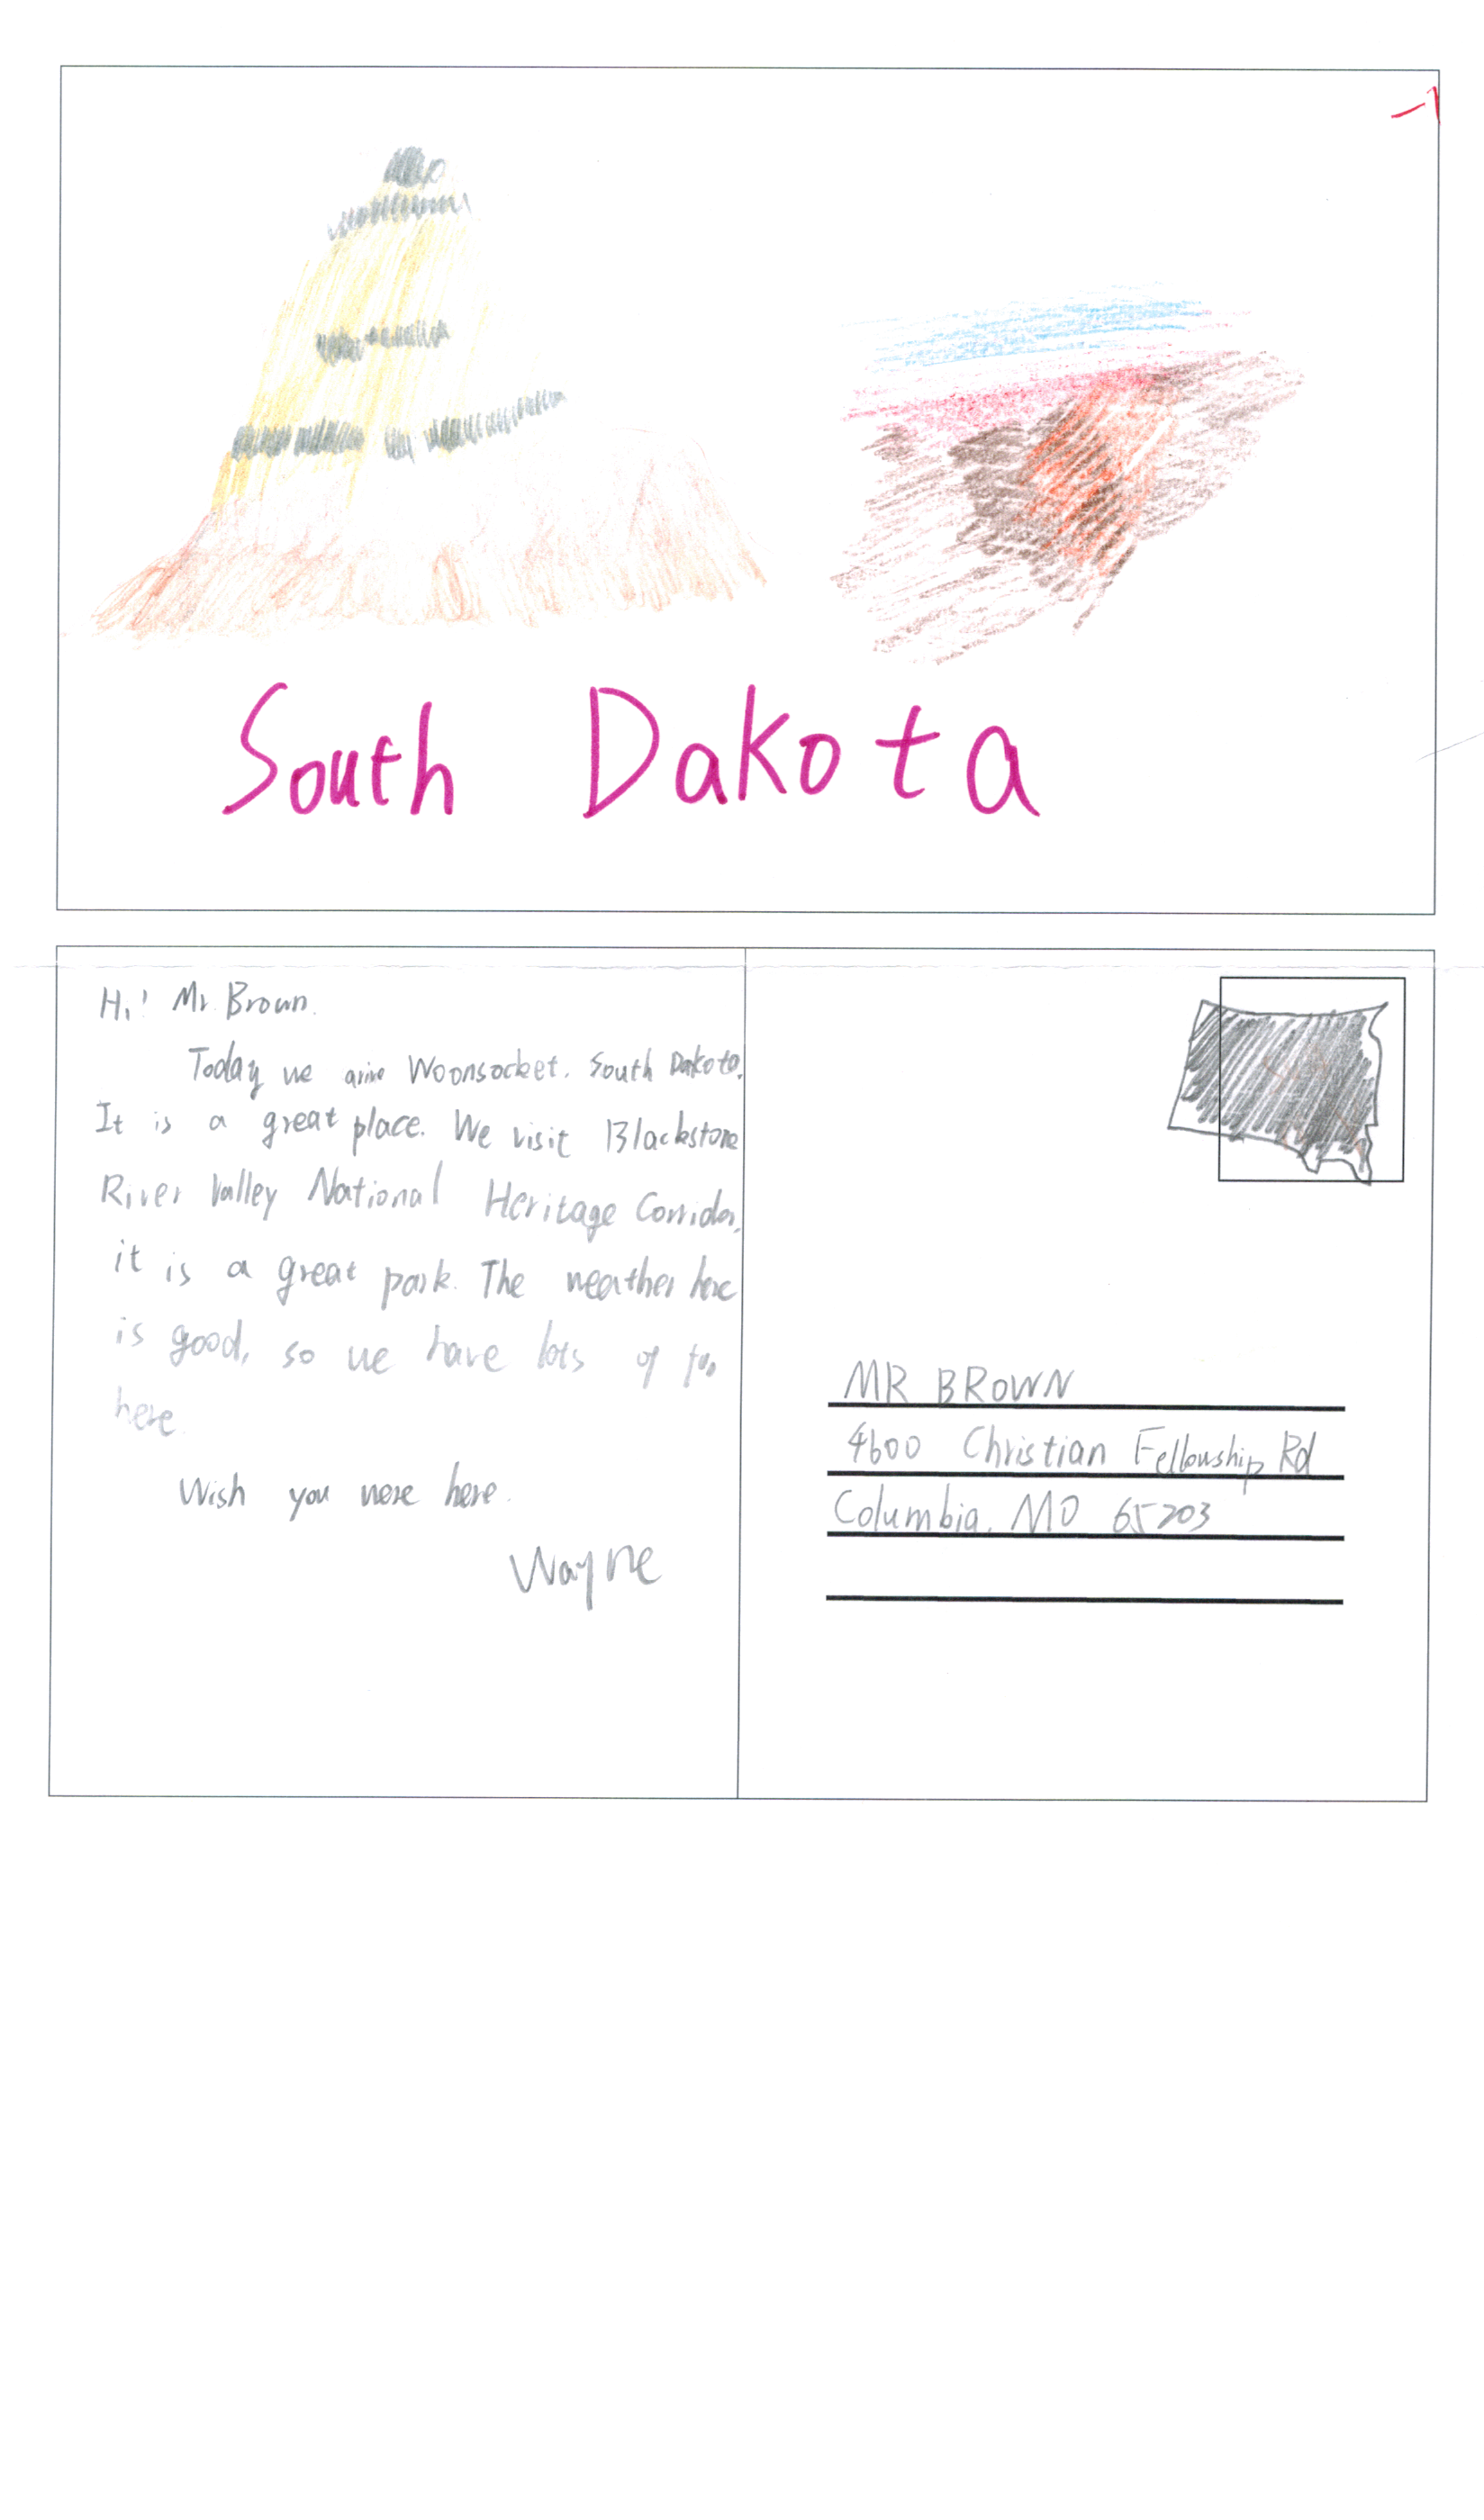 -1
South Dakota
Hi! Mr. Brown.
Today we arive Woonsocket, South Dakota.
It is a great place. We visit Blackstone
River Valley National Heritage Corridor,
it is a great park. The weather here
is good, so we have lots of fun
here.
Wish you were here.
Wayne
MR BROWN
4600 Christian Fellowship Rd
Columbia, MO 65203